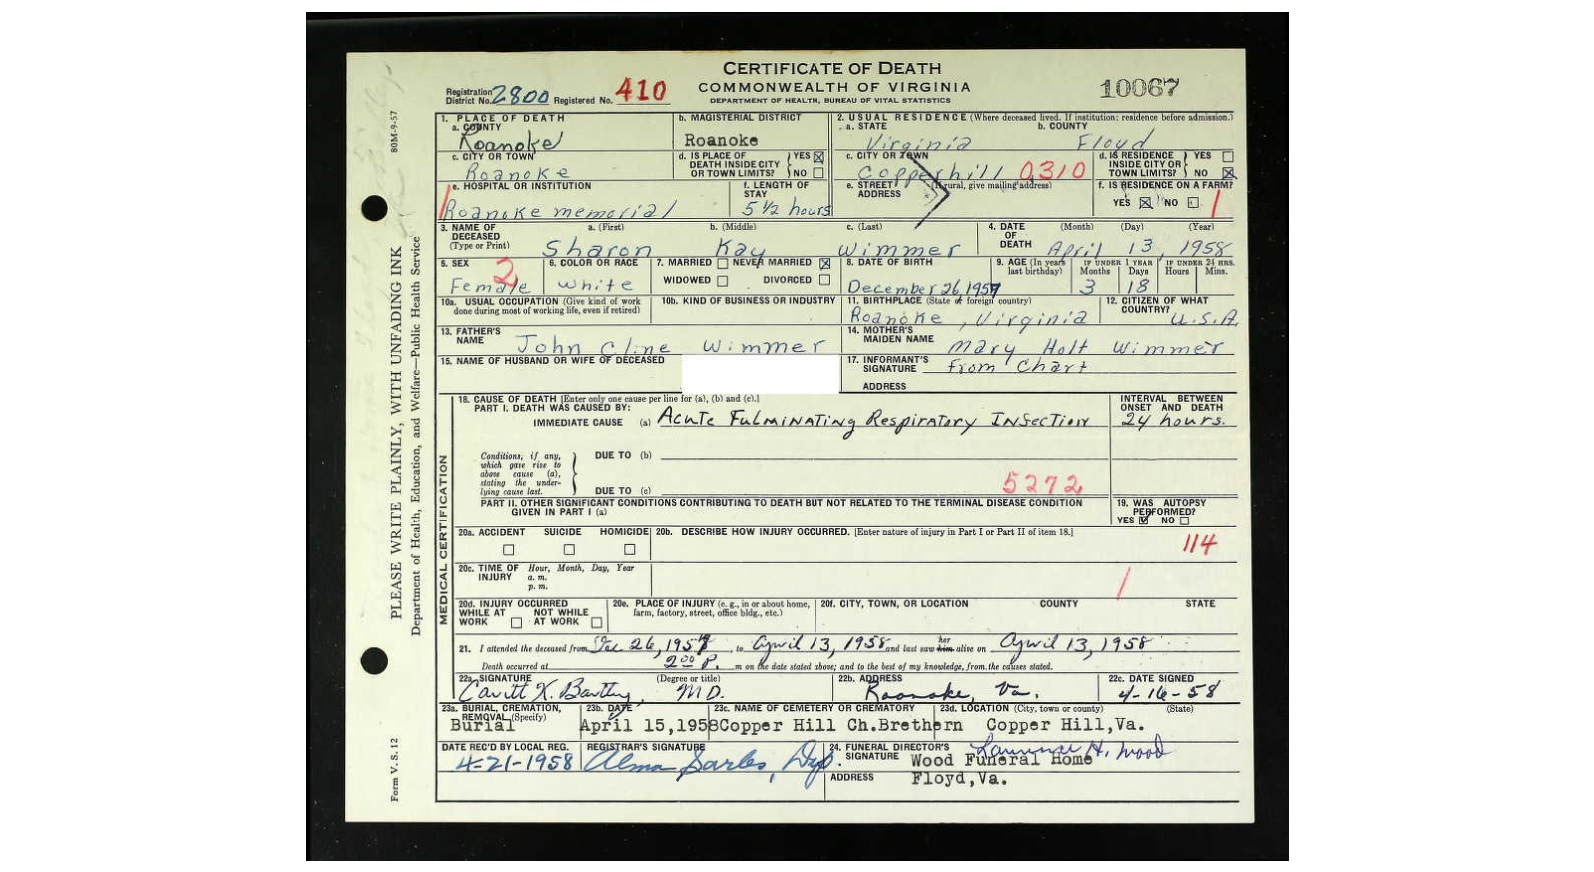 CERTIFICATE OF DEATH
COMMONWEALTH OF VIRGINIA
DEPARTMENT OF HEALTH, BUREAU OF VITAL STATISTICS
10067
Registration District No. 2800 Registered No. 410
80M-9-57
PLEASE WRITE PLAINLY, WITH UNFADING INK
Department of Health, Education, and Welfare—Public Health Service
Form V. S. 12
1. PLACE OF DEATH
a. COUNTY
Roanoke
b. MAGISTERIAL DISTRICT
Roanoke
2. USUAL RESIDENCE (Where deceased lived. If institution: residence before admission.)
a. STATE b. COUNTY
Virginia Floyd
c. CITY OR TOWN
Roanoke
d. IS PLACE OF DEATH INSIDE CITY OR TOWN LIMITS? YES NO
c. CITY OR TOWN
Copperhill 0310
d. IS RESIDENCE INSIDE CITY OR TOWN LIMITS? YES NO
e. HOSPITAL OR INSTITUTION
Roanoke memorial
f. LENGTH OF STAY
5 1/2 hours
e. STREET ADDRESS (If rural, give mailing address)
f. IS RESIDENCE ON A FARM?
YES NO 1
3. NAME OF DECEASED (Type or Print)
a. (First) b. (Middle) c. (Last)
Sharon Kay Wimmer
4. DATE OF DEATH (Month) (Day) (Year)
April 13, 1958
5. SEX
Female 2
6. COLOR OR RACE
White
7. MARRIED NEVER MARRIED
WIDOWED DIVORCED
8. DATE OF BIRTH
December 26, 1957
9. AGE (In years last birthday) IF UNDER 1 YEAR Months Days IF UNDER 24 HRS. Hours Mins.
3 18
10a. USUAL OCCUPATION (Give kind of work done during most of working life, even if retired)
10b. KIND OF BUSINESS OR INDUSTRY
11. BIRTHPLACE (State or foreign country)
Roanoke, Virginia
12. CITIZEN OF WHAT COUNTRY?
U.S.A.
13. FATHER'S NAME
John Cline Wimmer
14. MOTHER'S MAIDEN NAME
Mary Holt Wimmer
15. NAME OF HUSBAND OR WIFE OF DECEASED
17. INFORMANT'S SIGNATURE
From Chart
ADDRESS
MEDICAL CERTIFICATION
18. CAUSE OF DEATH [Enter only one cause per line for (a), (b) and (c).]
PART I. DEATH WAS CAUSED BY:
IMMEDIATE CAUSE (a) Acute Fulminating Respiratory Infection
INTERVAL BETWEEN ONSET AND DEATH
24 hours.
Conditions, if any, which gave rise to above cause (a), stating the underlying cause last.
DUE TO (b)
DUE TO (c)
5272
PART II. OTHER SIGNIFICANT CONDITIONS CONTRIBUTING TO DEATH BUT NOT RELATED TO THE TERMINAL DISEASE CONDITION GIVEN IN PART I (a)
19. WAS AUTOPSY PERFORMED?
YES NO
20a. ACCIDENT SUICIDE HOMICIDE
20b. DESCRIBE HOW INJURY OCCURRED. [Enter nature of injury in Part I or Part II of item 18.]
114
20c. TIME OF INJURY Hour, Month, Day, Year
a. m.
p. m.
20d. INJURY OCCURRED
WHILE AT WORK NOT WHILE AT WORK
20e. PLACE OF INJURY (e. g., in or about home, farm, factory, street, office bldg., etc.)
20f. CITY, TOWN, OR LOCATION COUNTY STATE
21. I attended the deceased from Dec 26, 1957, to April 13, 1958 and last saw him her alive on April 13, 1958
Death occurred at 2 00 P. m on the date stated above; and to the best of my knowledge, from the causes stated.
22a. SIGNATURE (Degree or title)
Cavitt K. Bartley, M D.
22b. ADDRESS
Roanoke, Va.
22c. DATE SIGNED
4-16-58
23a. BURIAL, CREMATION, REMOVAL (Specify)
Burial
23b. DATE
April 15, 1958
23c. NAME OF CEMETERY OR CREMATORY
Copper Hill Ch.Brethern
23d. LOCATION (City, town or county) (State)
Copper Hill,Va.
DATE REC'D BY LOCAL REG.
4-21-1958
REGISTRAR'S SIGNATURE
Alma Sarles, Dep.
24. FUNERAL DIRECTOR'S SIGNATURE
H. Wood
Wood Funeral Home
ADDRESS Floyd,Va.